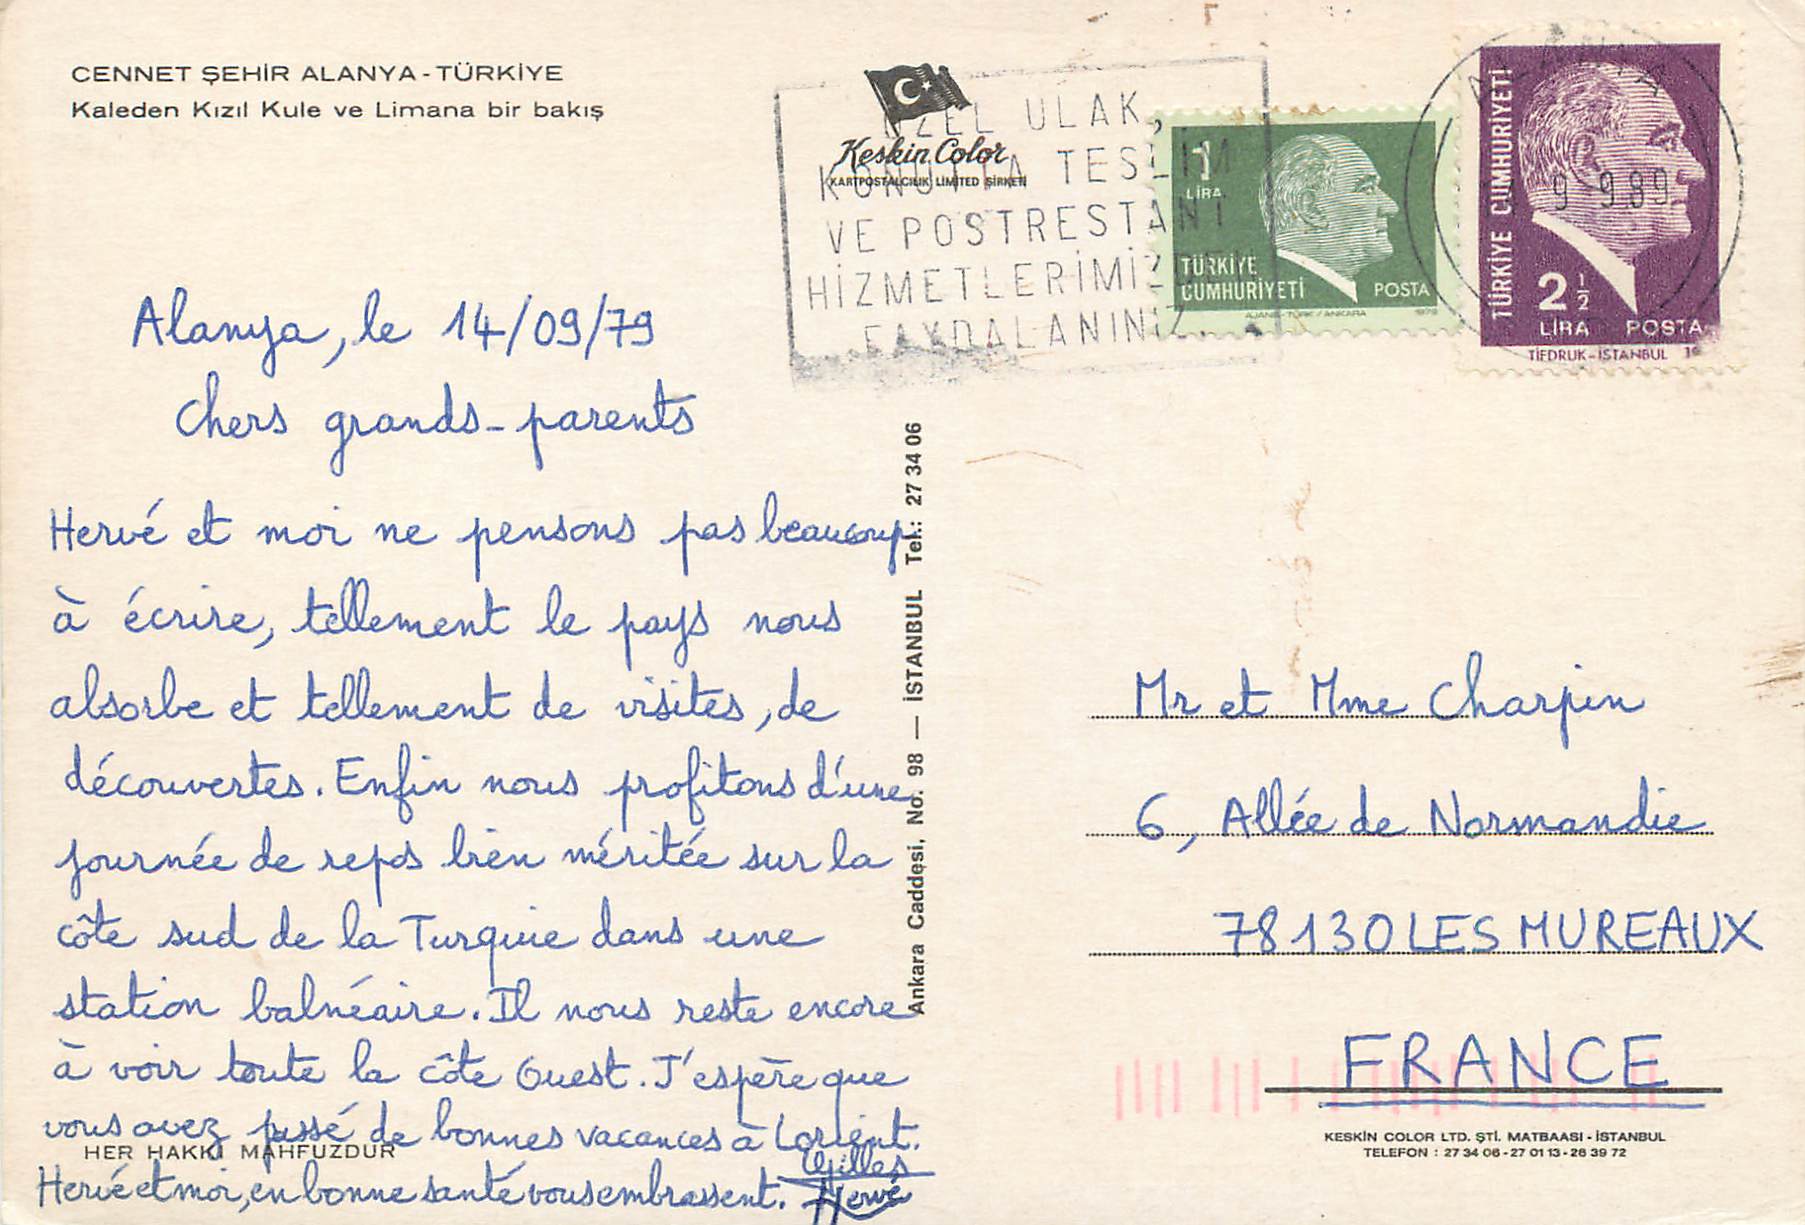 CENNET ŞEHİR ALANYA - TÜRKİYE
Kaleden Kızıl Kule ve Limana bir bakış
Keskin Color
KARTPOSTALCILIK LIMITED ŞİRKETİ
ÖZEL ULAK,
KONUTTA TESLİM
VE POSTRESTANT
HİZMETLERİMİZDEN
FAYDALANINIZ
1
LİRA
TÜRKİYE
CUMHURİYETİ
POSTA
AJANS-TÜRK / ANKARA
TÜRKİYE CUMHURİYETİ
2 ½
LİRA POSTA
TİFDRUK-İSTANBUL
ALANYA
Alanya, le 14/09/79
Chers grands-parents
Hervé et moi ne pensons pas beaucoup
à écrire, tellement le pays nous
absorbe et tellement de visites, de
découvertes. Enfin nous profitons d'une
journée de repos bien méritée sur la
côte sud de la Turquie dans une
station balnéaire. Il nous reste encore
à voir toute la côte Ouest. J'espère que
vous avez passé de bonnes vacances à Lorient.
Hervé et moi, en bonne santé vous embrassent.
Gilles
Hervé
HER HAKKI MAHFUZDUR
Ankara Caddesi, No. 98 — İSTANBUL Tel.: 27 34 06
Mr et Mme Charpin
6, Allée de Normandie
78130 LES MUREAUX
FRANCE
KESKİN COLOR LTD. ŞTİ. MATBAASI - İSTANBUL
TELEFON : 27 34 06 - 27 01 13 - 26 39 72